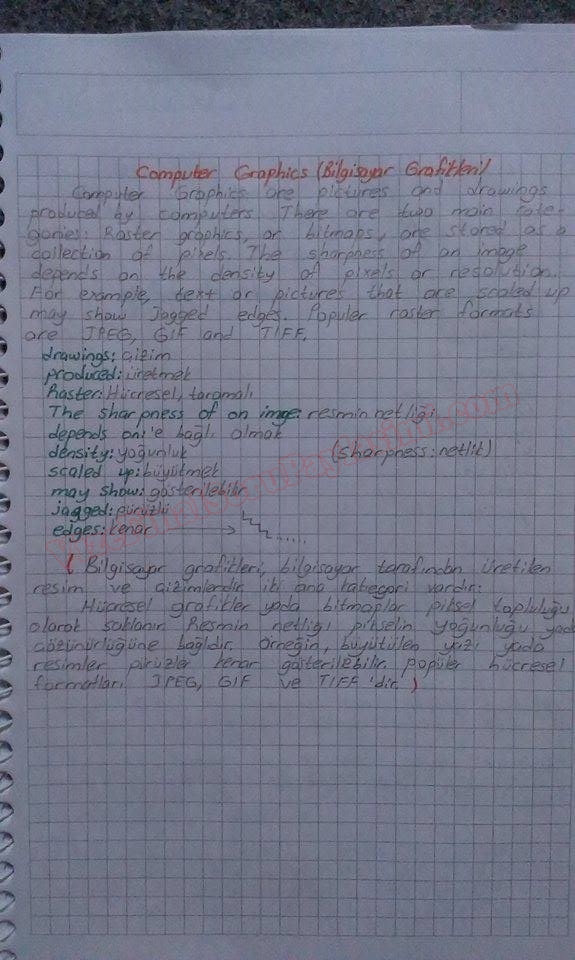 Computer Graphics (Bilgisayar Grafikleri)
Computer Graphics are pictures and drawings
produced by computers. There are two main cate-
gories: Raster graphics, or bitmaps, are stored as a
collection of pixels. The sharpness of an image
depends on the density of pixels or resolution.
For example, text or pictures that are scaled up
may show jagged edges. Populer raster formats
are JPEG, GIF and TIFF.
drawings: çizim
produced: üretmek
Raster: Hücresel, taramalı
The sharpness of on imge: resmin netliği
depends on: 'e bağlı olmak
density: yoğunluk (sharpness: netlik)
scaled up: büyütmek
may show: gösterilebilir
jagged: pürüzlü
edges: kenar
( Bilgisayar grafikleri, bilgisayar tarafından üretilen
resim ve çizimlerdir. iki ana kategori vardır:
Hücresel grafikler yada bitmaplar piksel topluluğu
olarak saklanır. Resmin netliği pikselin yoğunluğu yada
çözünürlüğüne bağlıdır. Örneğin, büyütülen yazı yada
resimler pürüzler kenar gösterilebilir. popüler hücresel
formatları JPEG, GIF ve TIFF 'dir. )